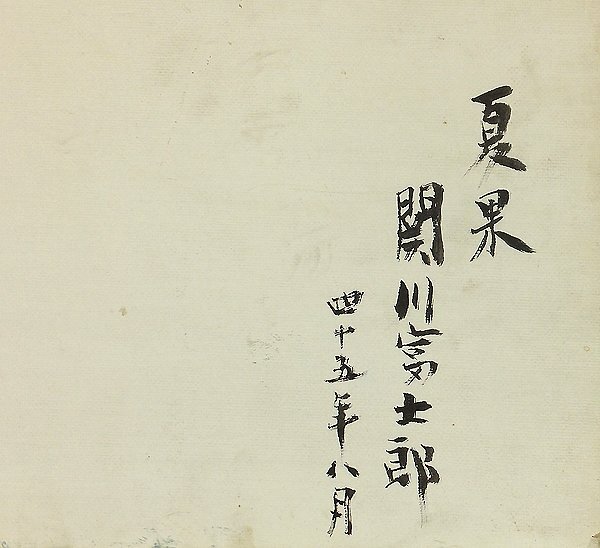 夏果
関川富士郎
四十五年八月